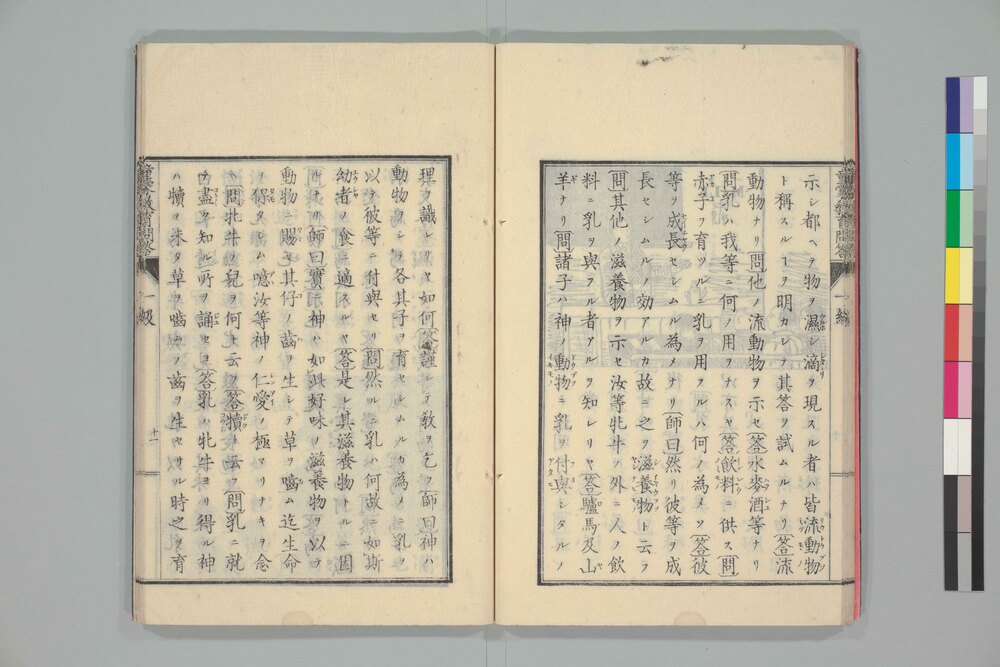 示シ都ヘテ物ヲ濕シ滴ヲ現スル者ハ皆流動物
ト稱スルヿヲ明カシテ其答ヲ試ムルナリ答流
動物ナリ問他ノ流動物ヲ示セ答水麥酒等ナリ
問乳ハ我等ニ何ノ用ヲナスヤ答飲料ニ供ス問
赤子ヲ育ツルニ乳ヲ用フルハ何ノ為メソ答彼
等ヲ成長セシムル為メナリ師曰然リ彼等ヲ成
長セシムルノ効アルカ故ニ之ヲ滋養物ト云フ
問其他ノ滋養物ヲ示セ汝等牝牛ノ外ニ人ノ飲
料ニ乳ヲ與フル者アルヲ知レリヤ答驢馬及山
羊ナリ問諸子ハ神ノ動物ニ乳ヲ付與シタルノ
理ヲ識レリヤ如何答謹シテ敎ヲ乞フ師曰神ハ
動物ノ各其子ヲ育セシムルカ為メニ乳ヲ
以テ彼等ニ付與セリ問然ルニ乳ハ何故ニ如斯
幼者ノ食ニ適スルヤ答是レ其滋養物トルニ因
ルナリ師曰實ニ神ハ如此好味ノ滋養物ヲ以テ
動物ニ賜ヒ其仔ノ齒ヲ生シテ草ヲ嚙ム迄生命
ヲ得タシム噫汝等神ノ仁愛ノ極マリナキヲ念
ヘ問牝牛ノ兒ヲ何ト云フ答犢ト云フ問乳ニ就
テ盡ク知ル所ヲ誦セヨ答乳ハ牝牛ヨリ得ル神
ハ犢ノ未タ草ヲ嚙ムノ齒ヲ生セサル時之ヲ育
一級
十一